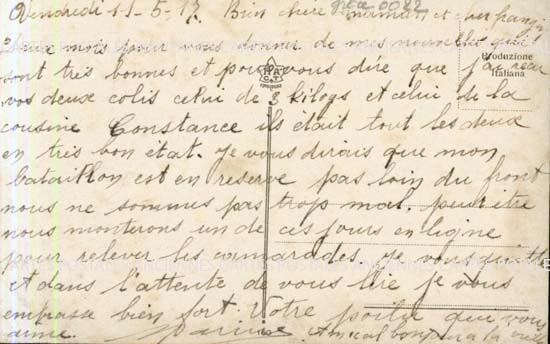 Vendredi 11-5-17. Bien chère maman et cher françois
gre a 0022
Deux mots pour vous donner de mes nouvelles qui
sont très bonnes et pour vous dire que j'ai reçu
Produzione
Italiana
vos deux colis celui de 3 kilogs et celui de la
cousine Constance ils était tout les deux
en très bon état. je vous dirais que mon
bataillon est en reserve pas loin du front
nous ne sommes pas trop mal. peut être
nous monterons un de ces jours en ligne
pour relever les camarades. je vous quitte
et dans l'attente de vous lire je vous
embrasse bien fort. Votre poilu que vous
aime. Amical bonjour a la